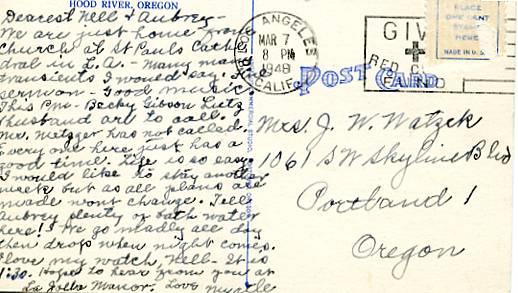 HOOD RIVER, OREGON
Dearest Nell & Aubrey -
We are just home from
Church at St Pauls Cath
dral in L.A. - Many many
transients I would say.
sermon - Good music.
This Pm - Becky Gibson Lietz
& husband are to call.
Mr. Metzger has not called.
Every one here just has a
good time. Life is so easy
I would like to stay another
week but as all plans are
made wont change. Tell
Aubrey plenty of bath water
here! We go madly all day
then drop when night comes.
I love my watch, Nell - It is
1:30. Hope to hear from you at
La Jolla Manor. Love Myrtle
LOS ANGELES
MAR 7
8 PM
1948
CALIF.
GIVE
RED CROSS
FUND
PLACE
ONE CENT
STAMP
HERE
MADE IN U.S.
POST CARD
Mrs. J. W. Watzek
1061 SW Skyline Blvd
Portland 1
Oregon